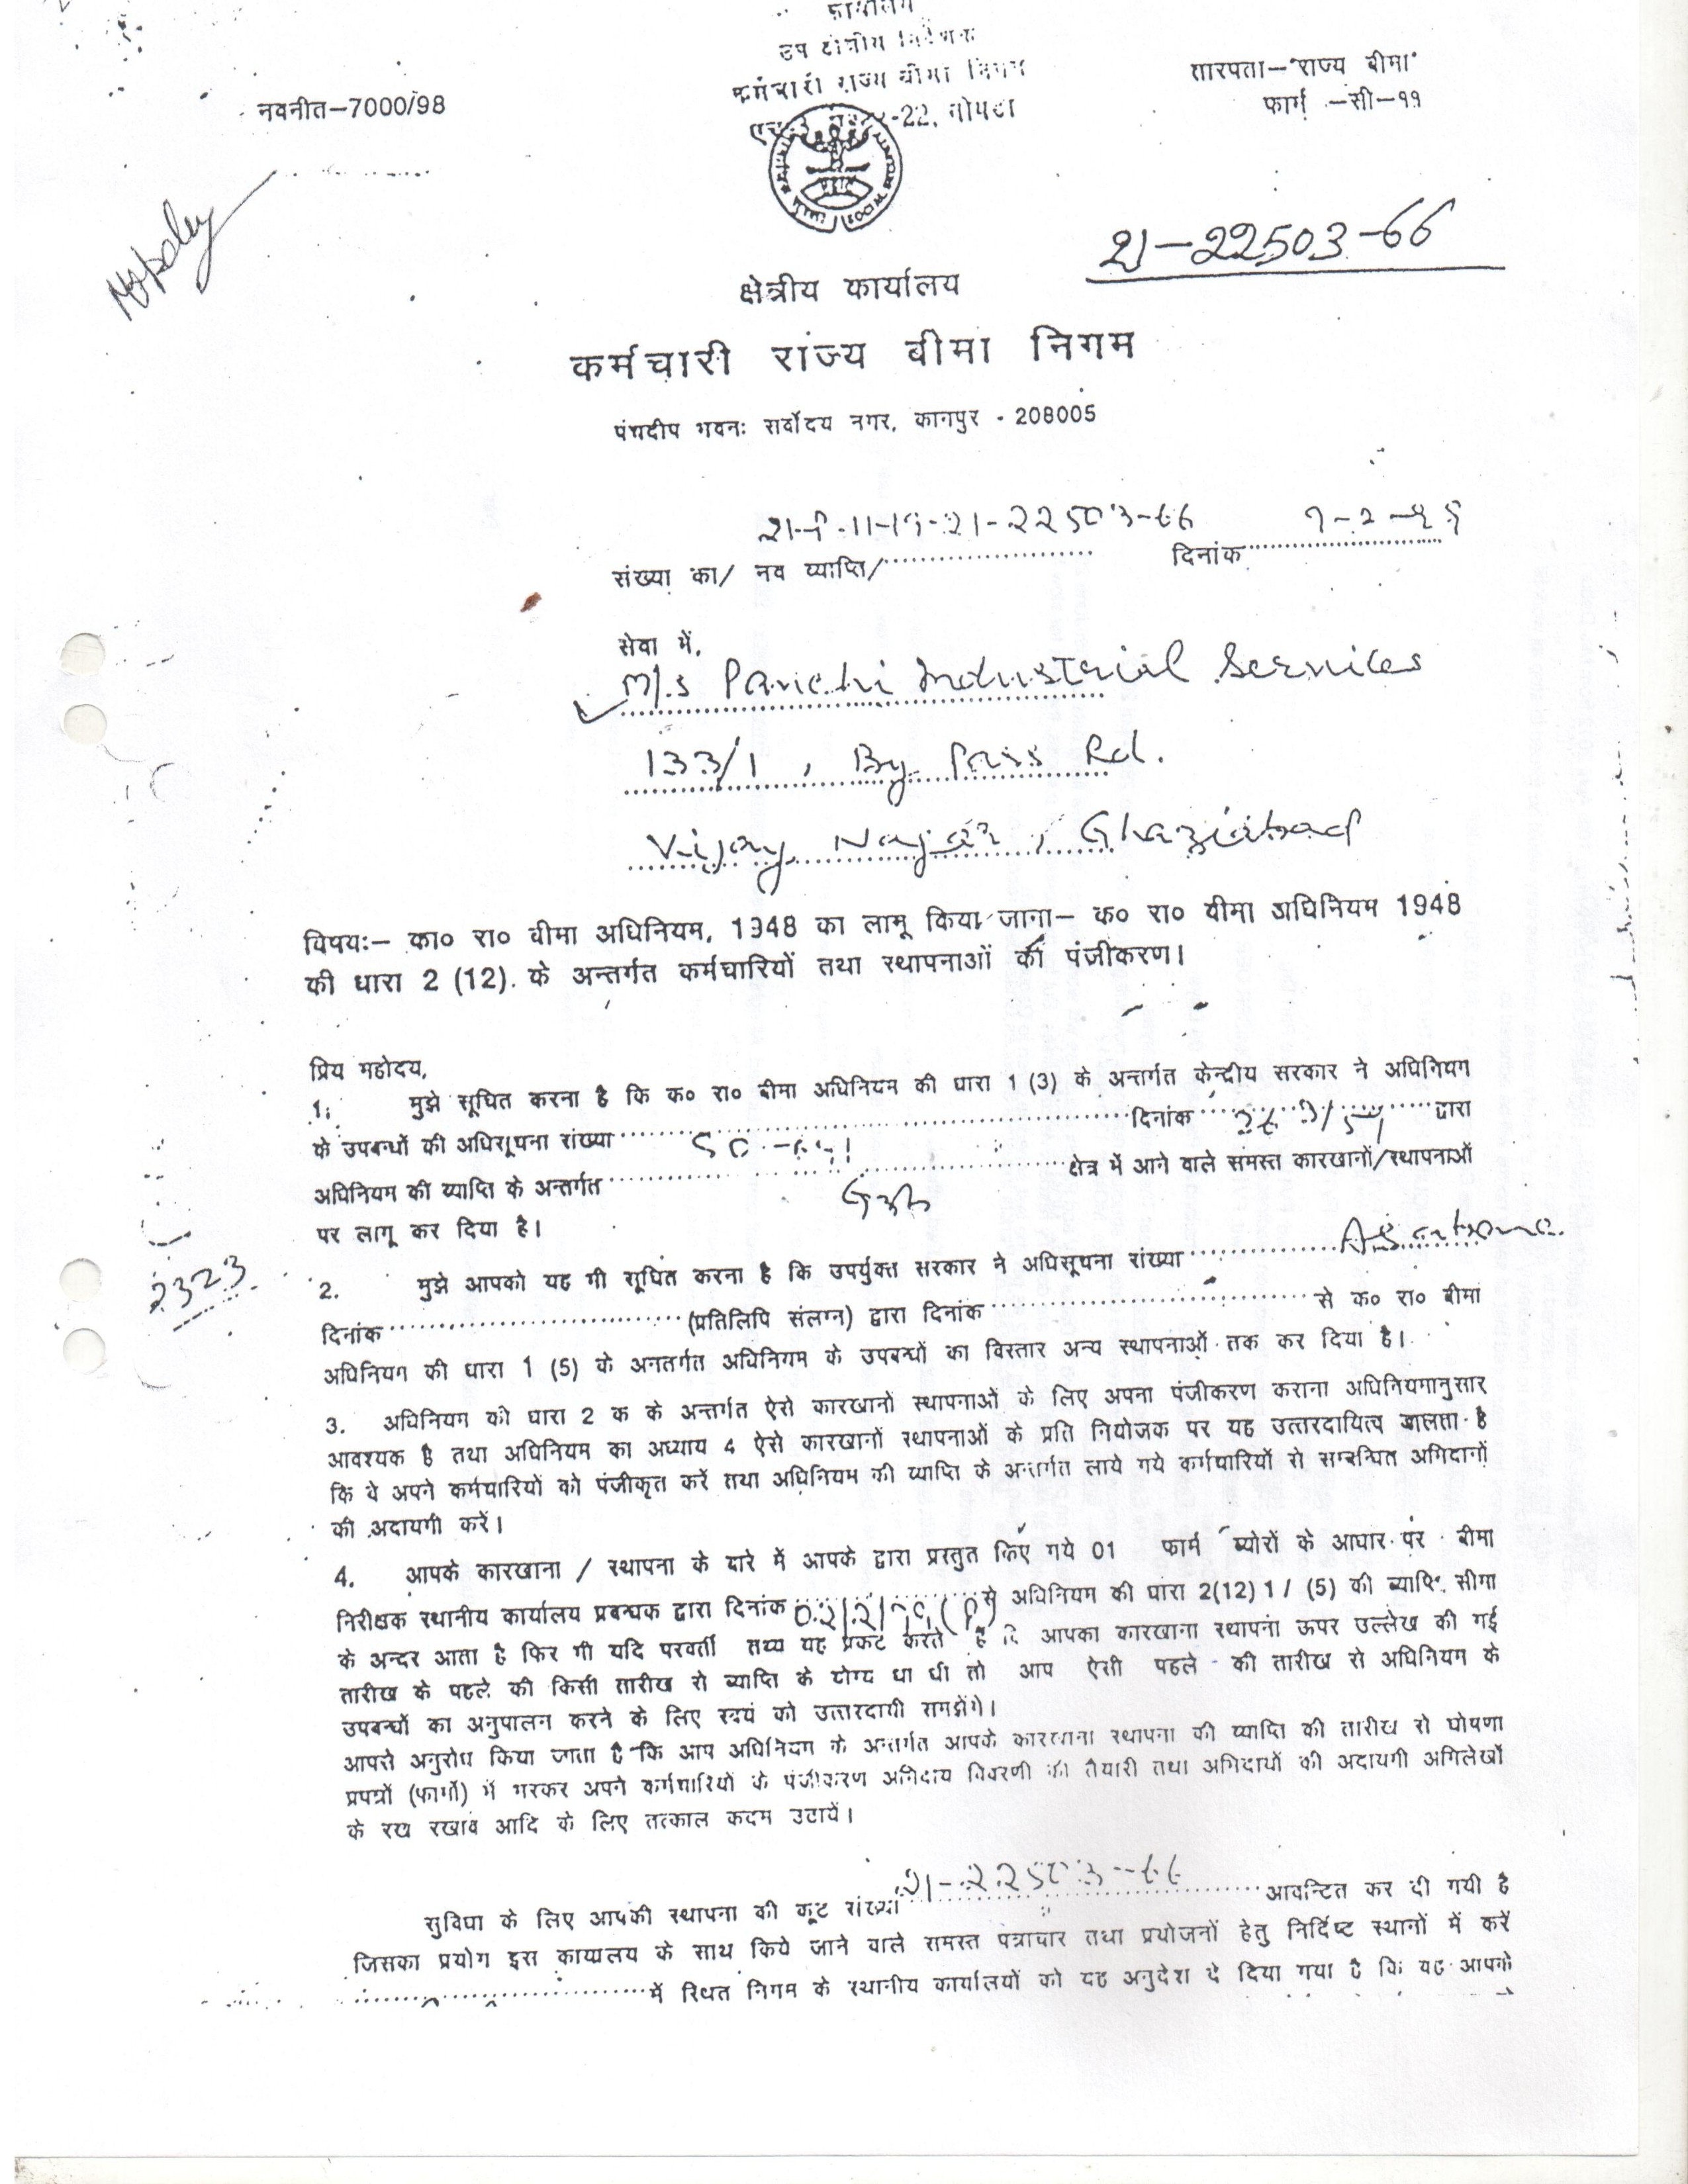 कार्यालय
उप क्षेत्रीय निदेशक
कर्मचारी राज्य बीमा निगम
-22, नोएडा
तारपता–"राज्य बीमा"
फार्म –सी–११
नवनीत–7000/98
SOCIAL
21-22503-66
क्षेत्रीय कार्यालय
कर्मचारी राज्य बीमा निगम
पंचदीप भवनः सर्वोदय नगर, कानपुर - 208005
21-22503-66
संख्या का/ नव व्याप्ति/ दिनांक
सेवा में,
M/s Panchi Industrial Services
133/1, By Pass Rd.
Vijay Nagar, Ghaziabad
विषयः– का० रा० बीमा अधिनियम, 1948 का लागू किया जाना– क० रा० बीमा अधिनियम 1948
की धारा 2 (12). के अन्तर्गत कर्मचारियों तथा स्थापनाओं की पंजीकरण।
प्रिय महोदय,
1. मुझे सूचित करना है कि क० रा० बीमा अधिनियम की धारा 1 (3) के अन्तर्गत केन्द्रीय सरकार ने अधिनियम
के उपबन्धों की अधिसूचना संख्या दिनांक द्वारा
अधिनियम की व्याप्ति के अन्तर्गत क्षेत्र में आने वाले समस्त कारखानों/स्थापनाओं
पर लागू कर दिया है।
2323
2. मुझे आपको यह भी सूचित करना है कि उपर्युक्त सरकार ने अधिसूचना संख्या As above
दिनांक (प्रतिलिपि संलग्न) द्वारा दिनांक से क० रा० बीमा
अधिनियम की धारा 1 (5) के अनतर्गत अधिनियम के उपबन्धों का विस्तार अन्य स्थापनाओं तक कर दिया है।
3. अधिनियम की धारा 2 क के अन्तर्गत ऐसे कारखानों स्थापनाओं के लिए अपना पंजीकरण कराना अधिनियमानुसार
आवश्यक है तथा अधिनियम का अध्याय 4 ऐसे कारखानों स्थापनाओं के प्रति नियोजक पर यह उत्तरदायित्व डालता है
कि वे अपने कर्मचारियों को पंजीकृत करें तथा अधिनियम की व्याप्ति के अन्तर्गत लाये गये कर्मचारियों से सम्बन्धित अभिदानों
की अदायगी करें।
4. आपके कारखाना / स्थापना के बारे में आपके द्वारा प्रस्तुत किए गये 01 फार्म ब्योरों के आधार पर बीमा
निरीक्षक स्थानीय कार्यालय प्रबन्धक द्वारा दिनांक से अधिनियम की धारा 2(12) 1/ (5) की व्याप्ति सीमा
के अन्दर आता है फिर भी यदि परवर्ती तथ्य यह प्रकट करते हैं कि आपका कारखाना स्थापना ऊपर उल्लेख की गई
तारीख के पहले की किसी तारीख से व्याप्ति के योग्य था थी तो आप ऐसी पहले की तारीख से अधिनियम के
उपबन्धों का अनुपालन करने के लिए स्वयं को उत्तरदायी समझेंगे।
आपसे अनुरोध किया जाता है कि आप अधिनियम के अन्तर्गत आपके कारखाना स्थापना की व्याप्ति की तारीख से घोषणा
प्रपत्रों (फार्मो) में भरकर अपने कर्मचारियों के पंजीकरण अभिदाय विवरणी की तैयारी तथा अभिदायों की अदायगी अभिलेखों
के रख रखाव आदि के लिए तत्काल कदम उठायें।
सुविधा के लिए आपकी स्थापना की कूट संख्या 21-22503-66 आवन्टित कर दी गयी है
जिसका प्रयोग इस कार्यालय के साथ किये जाने वाले समस्त पत्राचार तथा प्रयोजनों हेतु निर्दिष्ट स्थानों में करें
में स्थित निगम के स्थानीय कार्यालयों को यह अनुदेश दे दिया गया है कि यह आपके